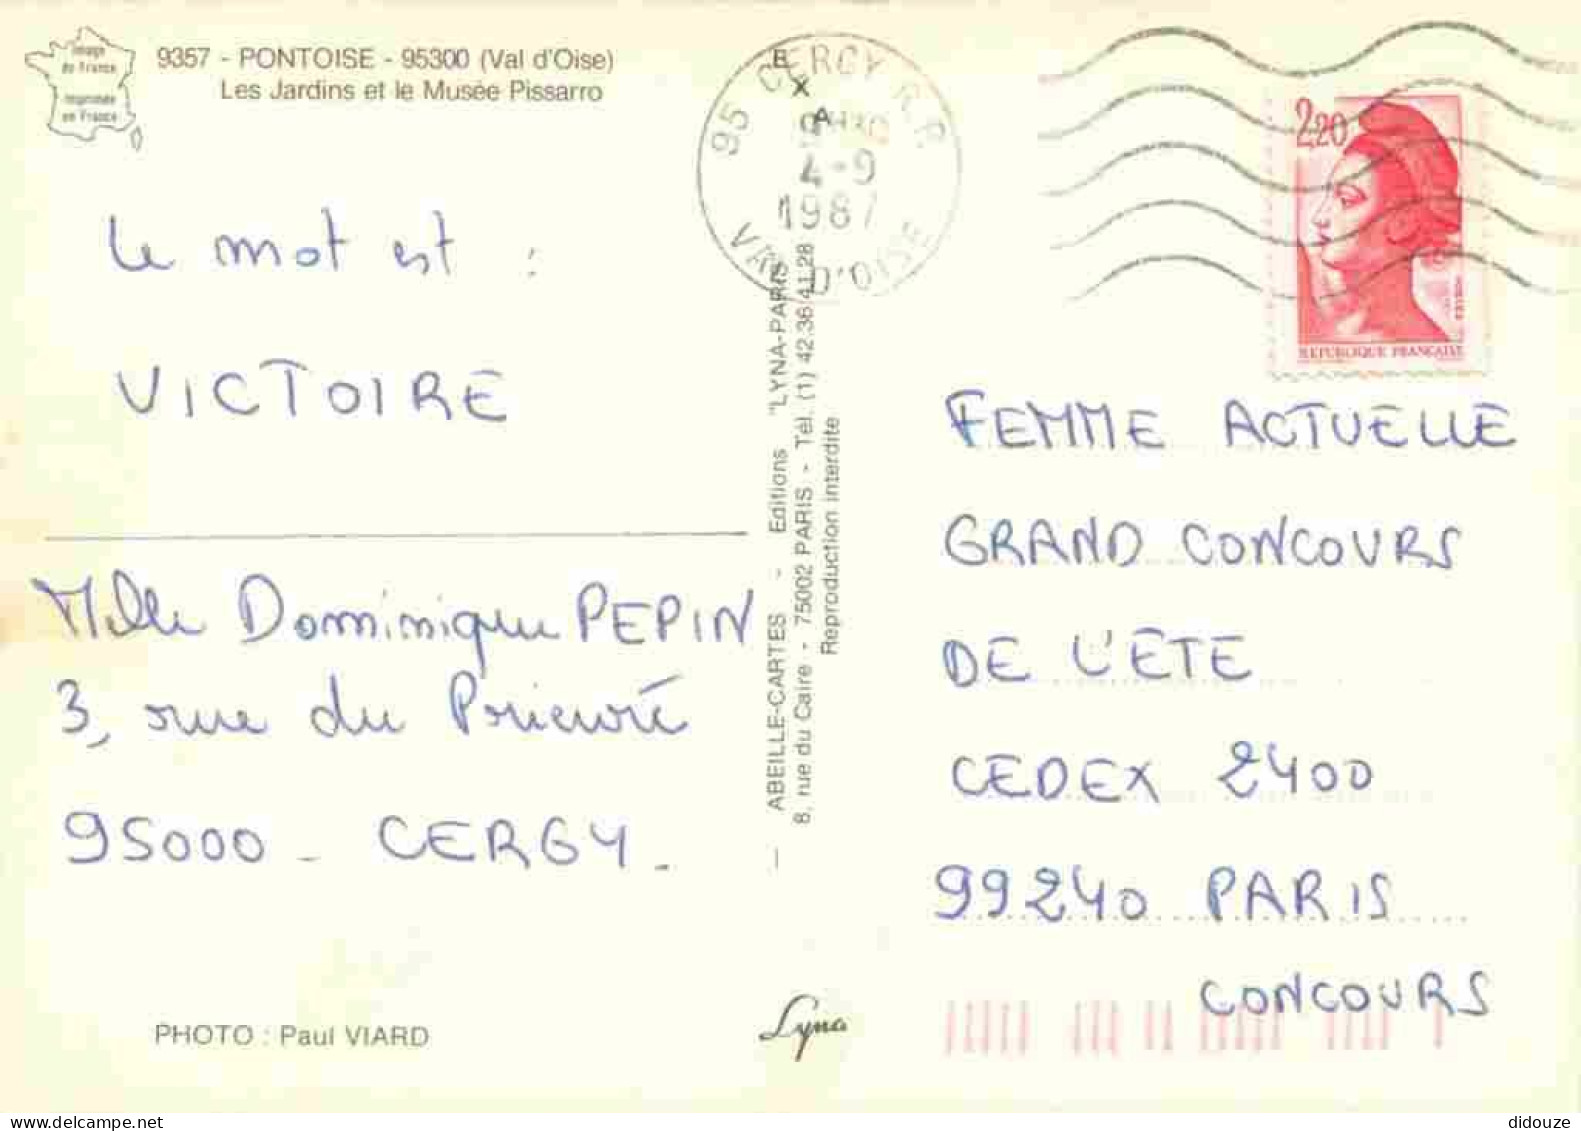 Image
de France
Imprimée
en France
9357 - PONTOISE - 95300 (Val d'Oise)
Les Jardins et le Musée Pissarro
E
X
A
95 CERGY R.P.
4-9
1987
VAL D'OISE
2,20
REPUBLIQUE FRANÇAISE
Le mot est :
VICTOIRE
Melle Dominique PEPIN
3, rue du Prieuré
95000 - CERGY.
PHOTO : Paul VIARD
— ABEILLE-CARTES - Editions "LYNA-PARIS"
8, rue du Caire - 75002 PARIS - Tél. (1) 42.36.41.28
Reproduction interdite
Lyna
FEMME ACTUELLE
GRAND CONCOURS
DE L'ETE
CEDEX 2400
99240 PARIS
CONCOURS
didouze